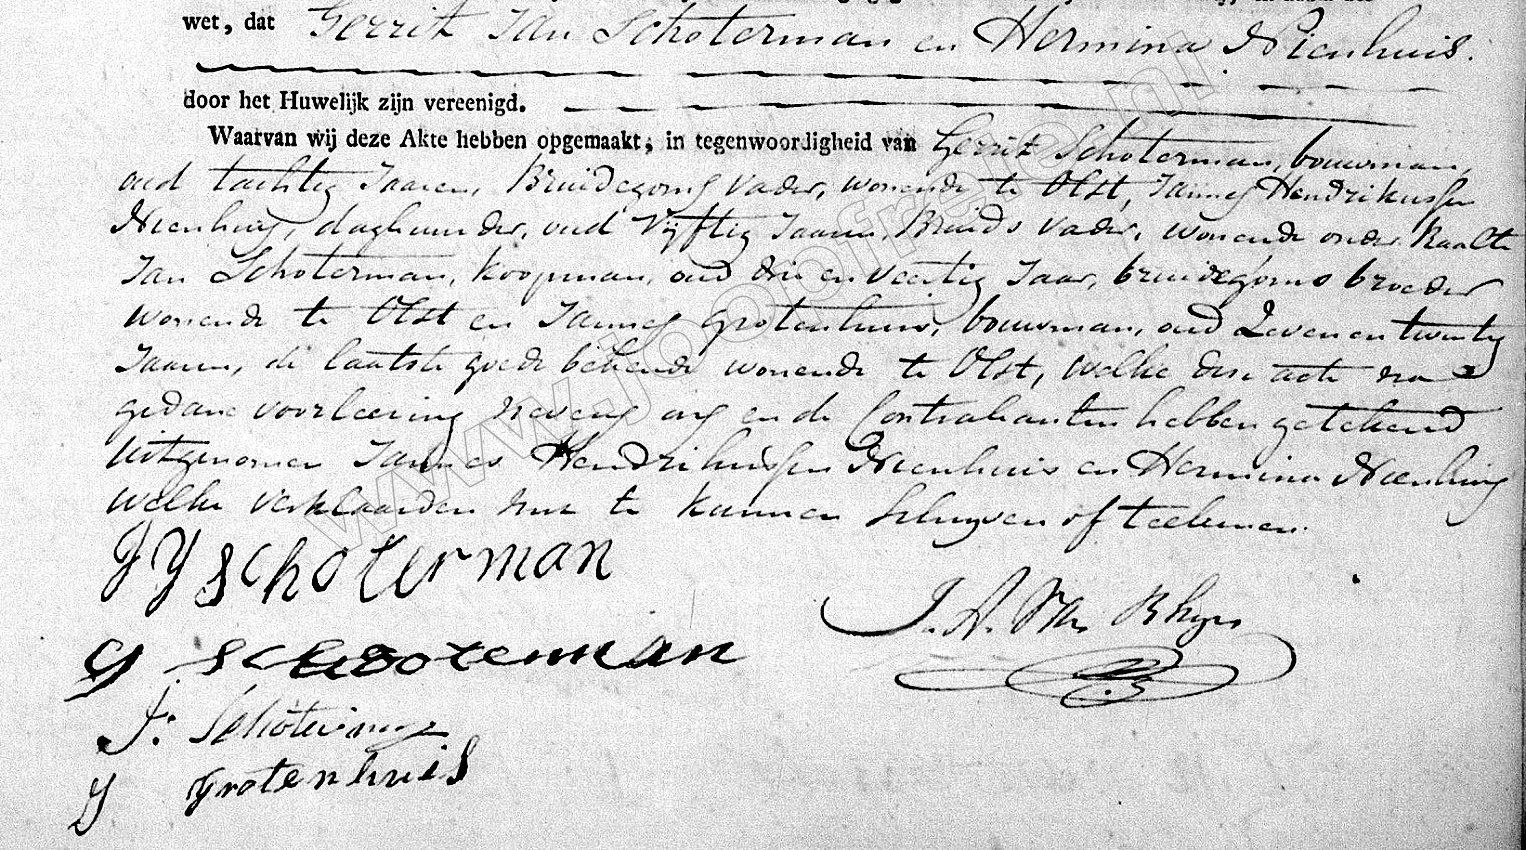 wet, dat Gerrit Jan Schoterman en Hermina Nienhuis.
door het Huwelijk zijn vereenigd.
Waarvan wij deze Akte hebben opgemaakt, in tegenwoordigheid van Gerrit Schoterman, bouwman,
oud tachtig Jaaren, Bruidegoms vader, wonende te Olst, Jannes Hendrikussen
Nienhuis, daghuurder, oud Vijftig Jaaren, Bruids vader, wonende onder Raalte
Jan Schoterman, koopman, oud drie en veertig Jaar, bruidegoms broeder
wonende te Olst en Jannes Grotenhuis, bouwman, oud Zeven en twintig
Jaaren, de laatste goede bekende wonende te Olst, welke dese acte na
gedane voorleesing nevens ons en de Contrahanten hebben getekend
uitgenomen Jannes Hendrikussen Nienhuis en Hermina Nienhuis
welke verklaarden niet te kunnen Schrijven of teekenen.
G J Schoterman
J. A. Van Rhijn
G Schooterman
J: Schoterman
J Grotenhuis
www.jooplrenen.nl